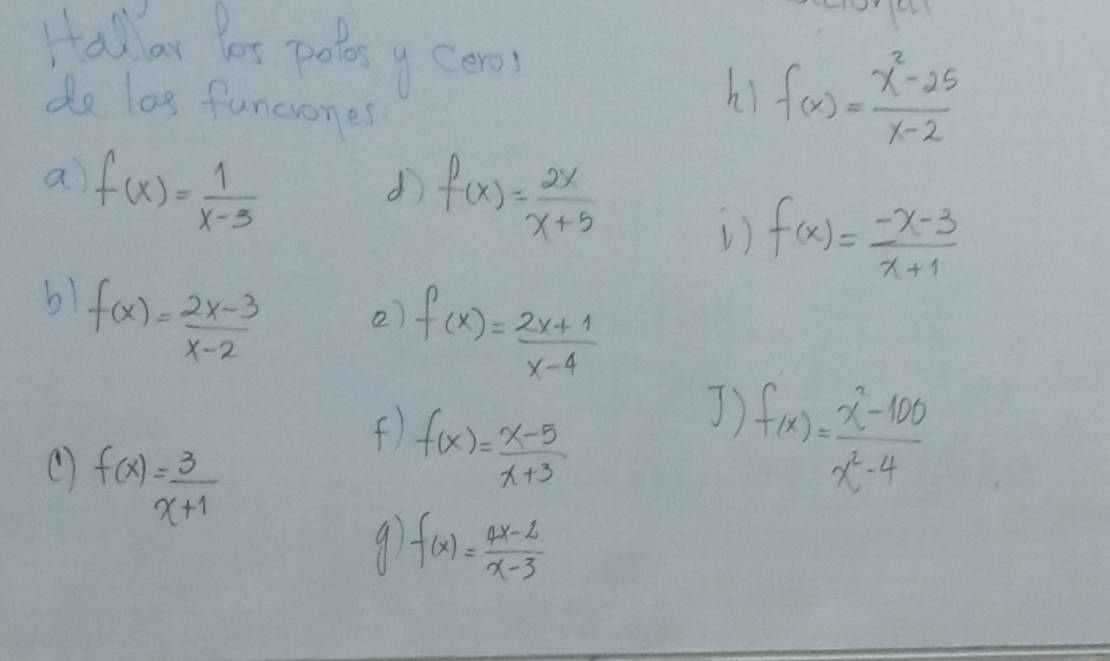 Hallar los polos y ceros
de las funciones.
a) f(x) = 1/(x-3)
b) f(x) = (2x-3)/(x-2)
c) f(x) = 3/(x+1)
d) f(x) = 2x/(x+5)
e) f(x) = (2x+1)/(x-4)
f) f(x) = (x-5)/(x+3)
g) f(x) = (4x-2)/(x-3)
h) f(x) = (x²-25)/(x-2)
i) f(x) = (-x-3)/(x+1)
J) f(x) = (x²-100)/(x²-4)